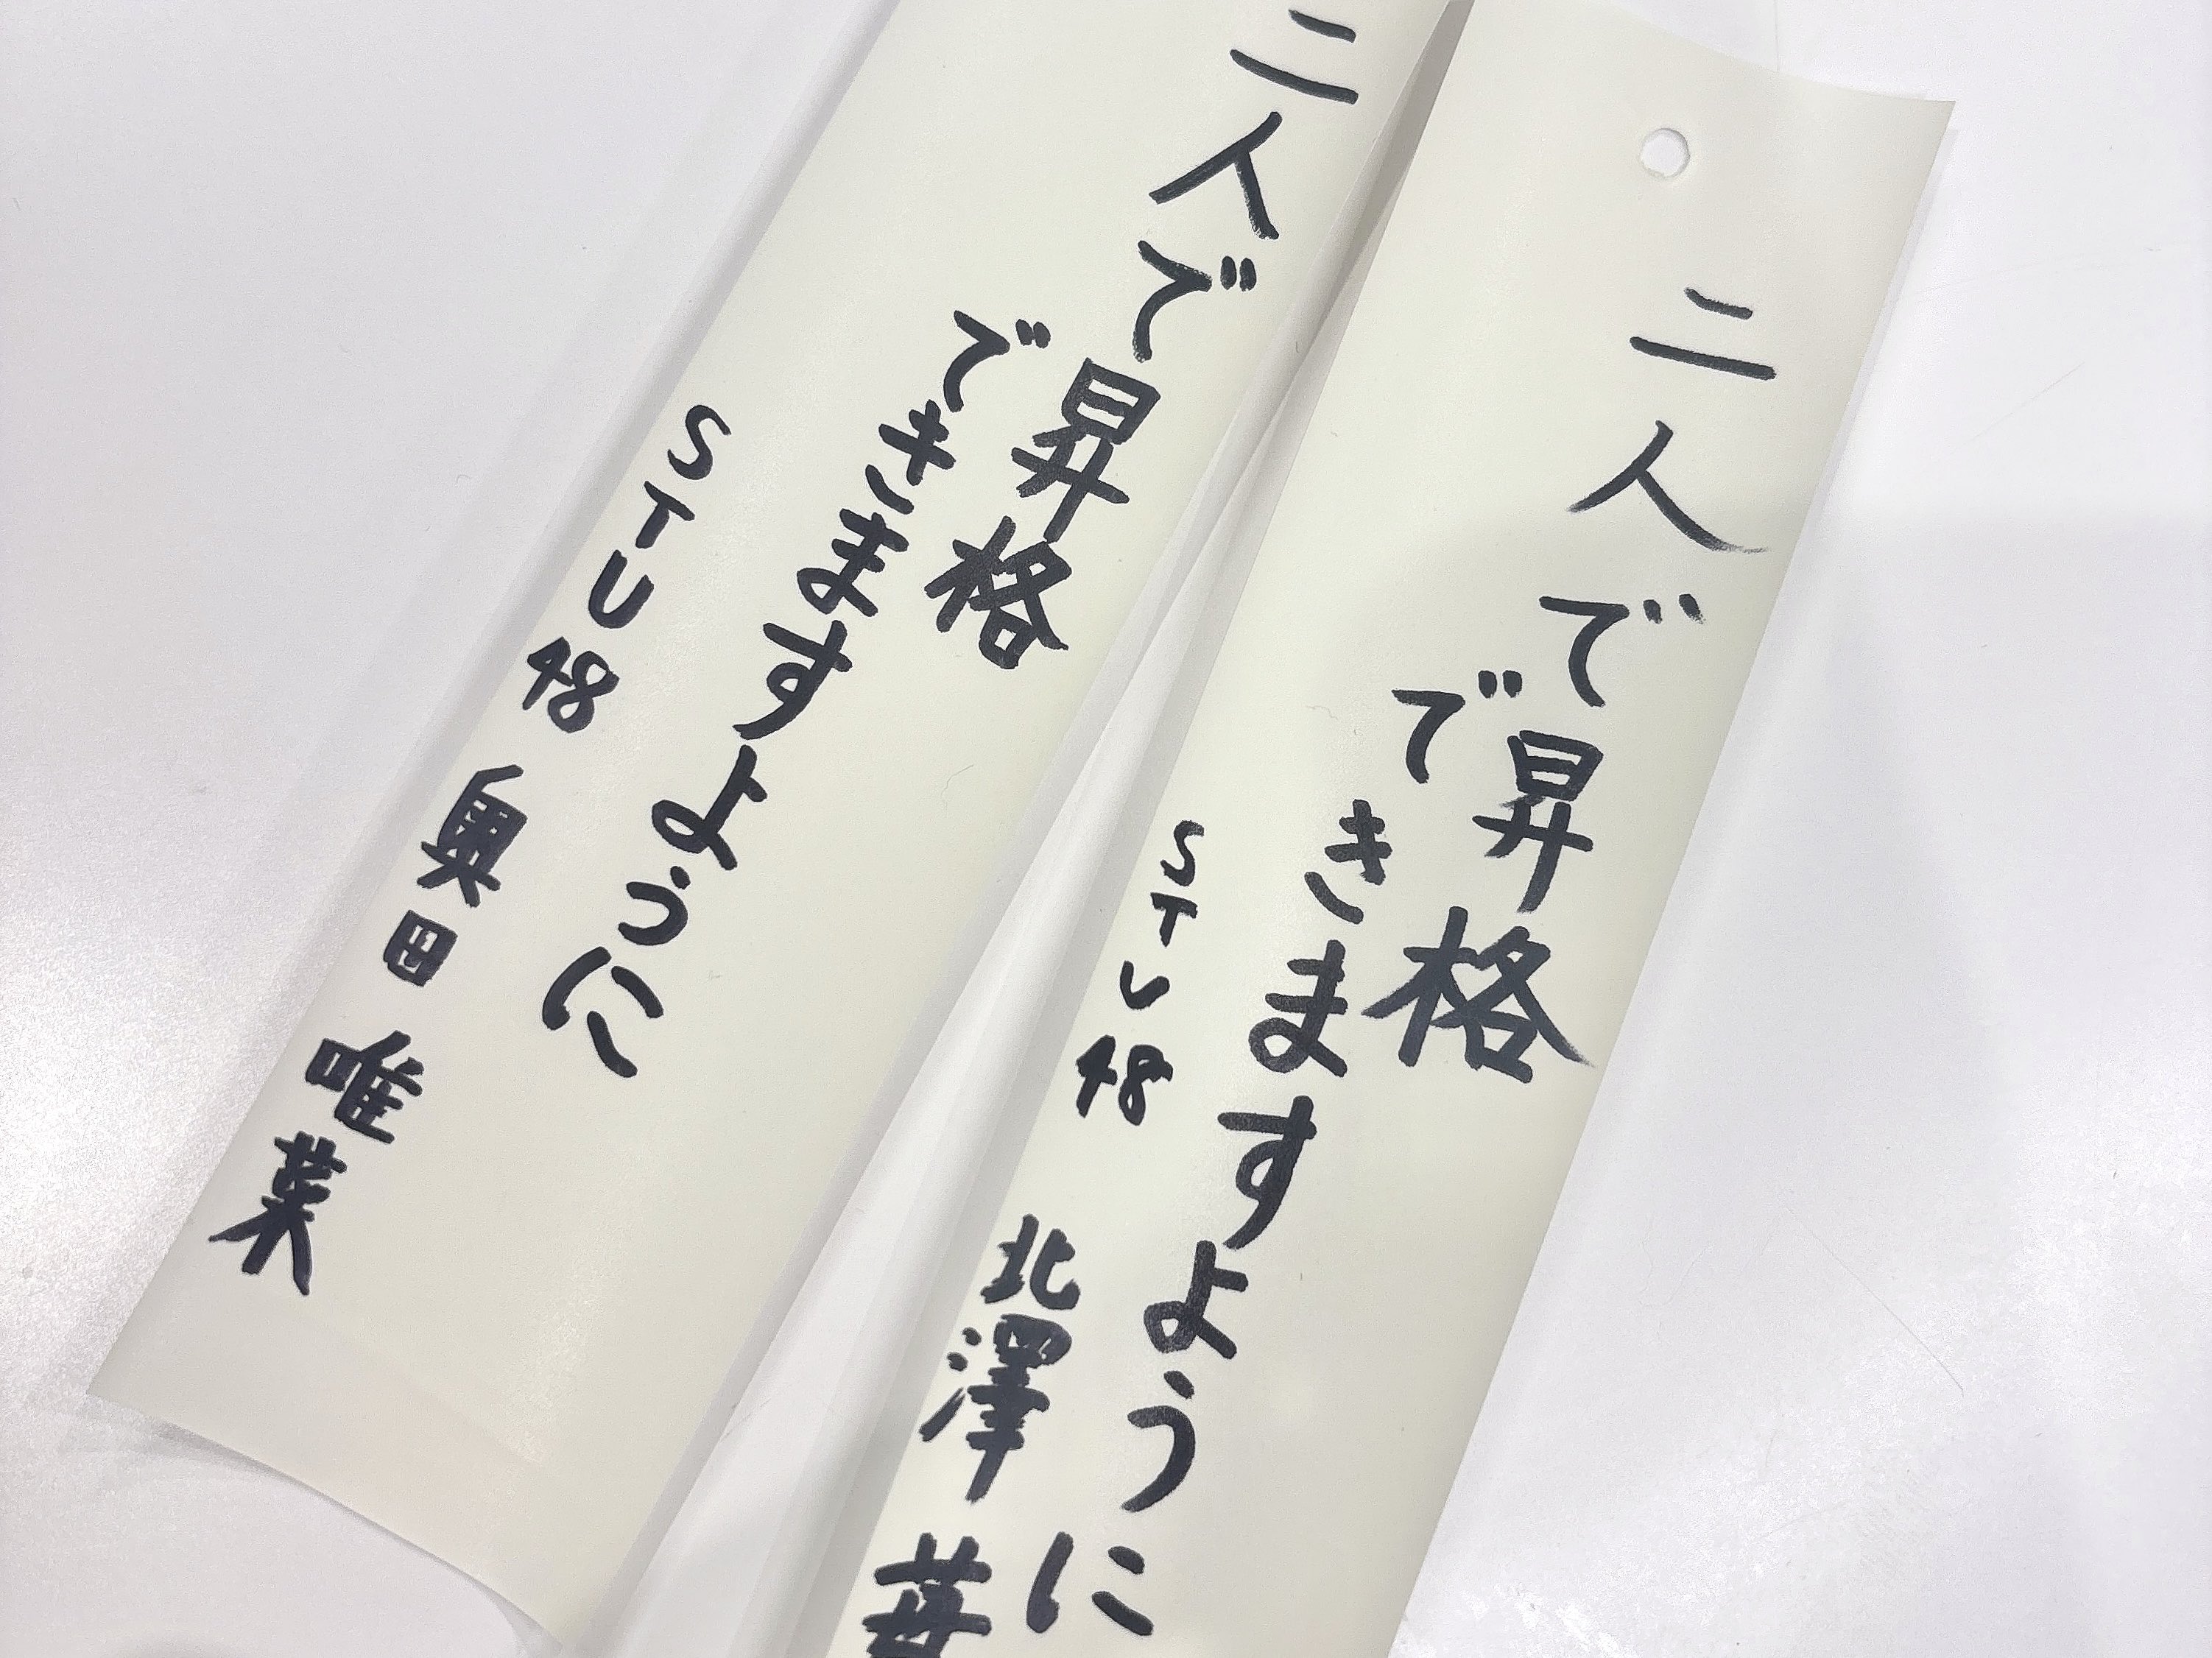 二人で昇格
できますように
STU48 北澤 葉
二人で昇格
できますように
STU48 奥田 唯菜